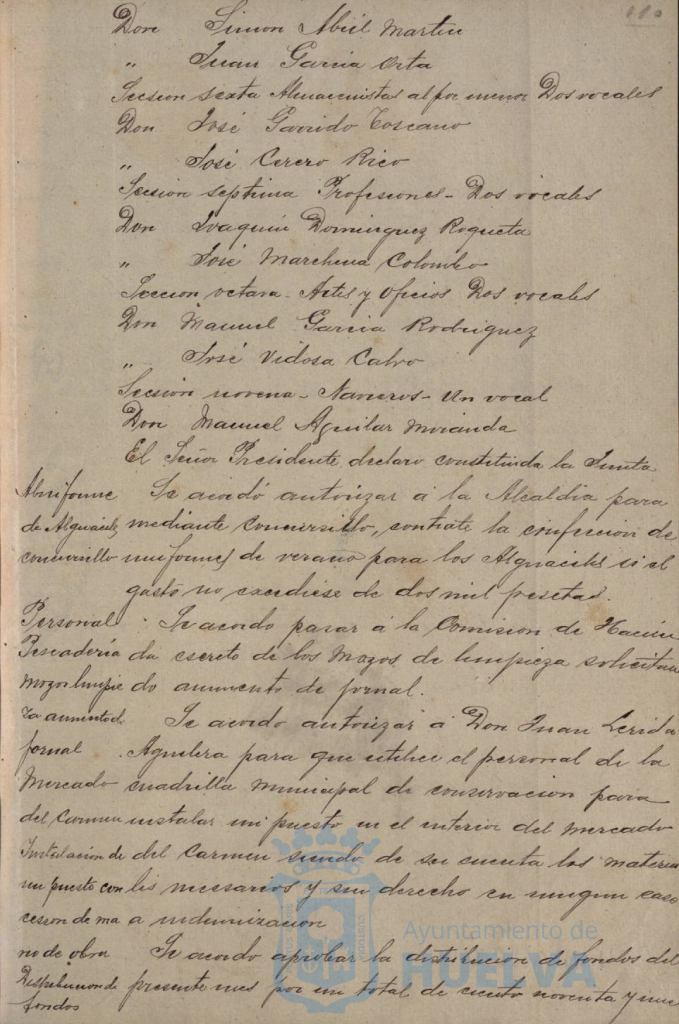 110
Don Simon Abril Martin
" Juan Garcia Orta
Seccion sexta Almacenistas al por menor Dos vocales
Don José Garrido Toscano
" José Cerero Rico
Seccion septima Profesiones - Dos vocales
Don Joaquin Dominguez Roqueta
" José Marchena Colombo
Seccion octava - Artes y Oficios Dos vocales
Don Manuel Garcia Rodriguez
" José Vidosa Calvo
Seccion novena - Navieros - Un vocal
Don Manuel Aguilar Moranda
El Señor Presidente declaro constituida la Junta
Uniforme Se acordó autorizar á la Alcaldia para
de Alguaciles mediante concursillo, contrate la confeccion de
concursillo uniformes de verano para los Alguaciles si el
gasto no excediese de dos mil pesetas.
Personal Se acordo pasar á la Comision de Hacien
Pescadería da escrito de los Mozos de limpieza solicitan
Mozos limpie do aumento de jornal.
za aumento de Se acordo autorizar á Don Juan Lerida
jornal Aguilera para que utilice el personal de la
Mercado cuadrilla municipal de conservacion para
del Carmen instalar un puesto en el interior del Mercado
Instalacion de del Carmen siendo de su cuenta los materia
un puesto con les necesarios y sin derecho en ningun caso
cesion de ma a indemnizacion
no de obra Se acordo aprobar la distribucion de fondos del
Distribucion de presente mes por un total de ciento noventa y nue
fondos
Ayuntamiento de
HUELVA